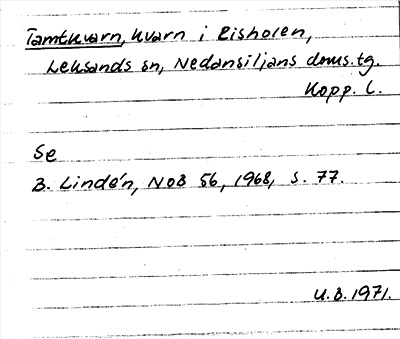 Tamtkvarn, kvarn i Risholen,
Leksands sn, Nedansiljans doms.tg.
Kopp. l.
Se
B. Lindén, NoB 56, 1968, s. 77.
U.B. 1971.